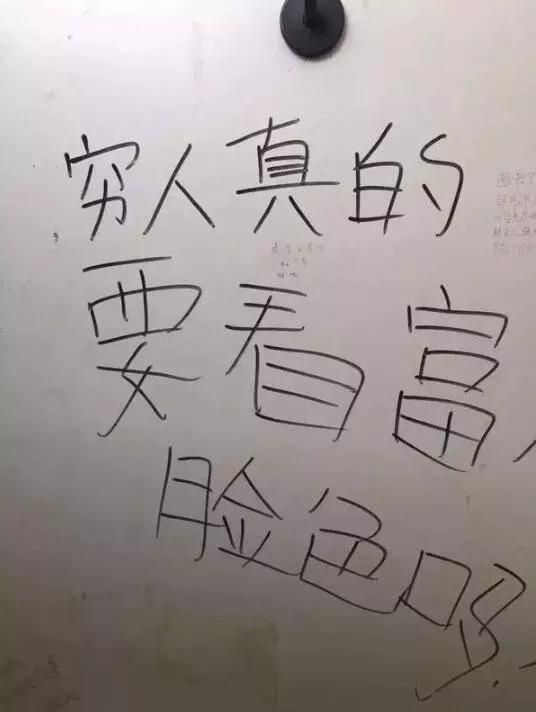 穷人真的
要看富
脸色吗